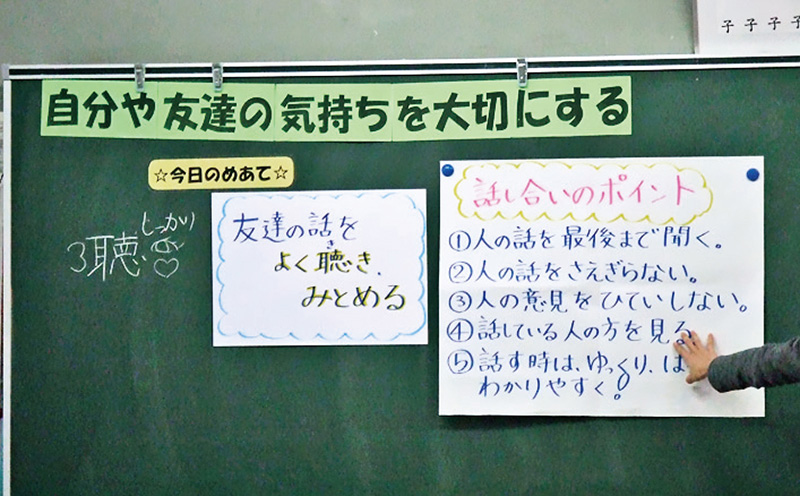 子子子子
自分や友達の気持ちを大切にする
☆今日のめあて☆
しっかり
聴
友達の話を
よく聴き、
き
みとめる
話し合いのポイント
①人の話を最後まで聞く。
②人の話をさえぎらない。
③人の意見をひていしない。
④話している人の方を見る
⑤話す時は、ゆっくり、は
わかりやすく。